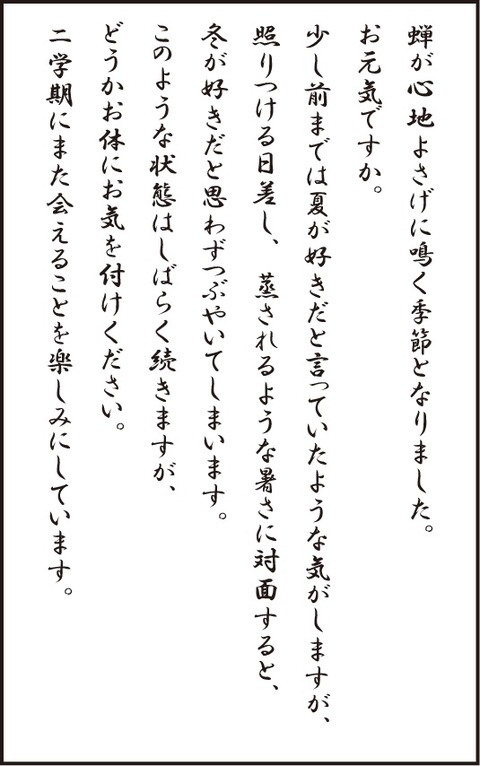 蝉が心地よさげに鳴く季節となりました。
お元気ですか。
少し前までは夏が好きだと言っていたような気がしますが、
照りつける日差し、蒸されるような暑さに対面すると、
冬が好きだと思わずつぶやいてしまいます。
このような状態はしばらく続きますが、
どうかお体にお気を付けください。
二学期にまた会えることを楽しみにしています。